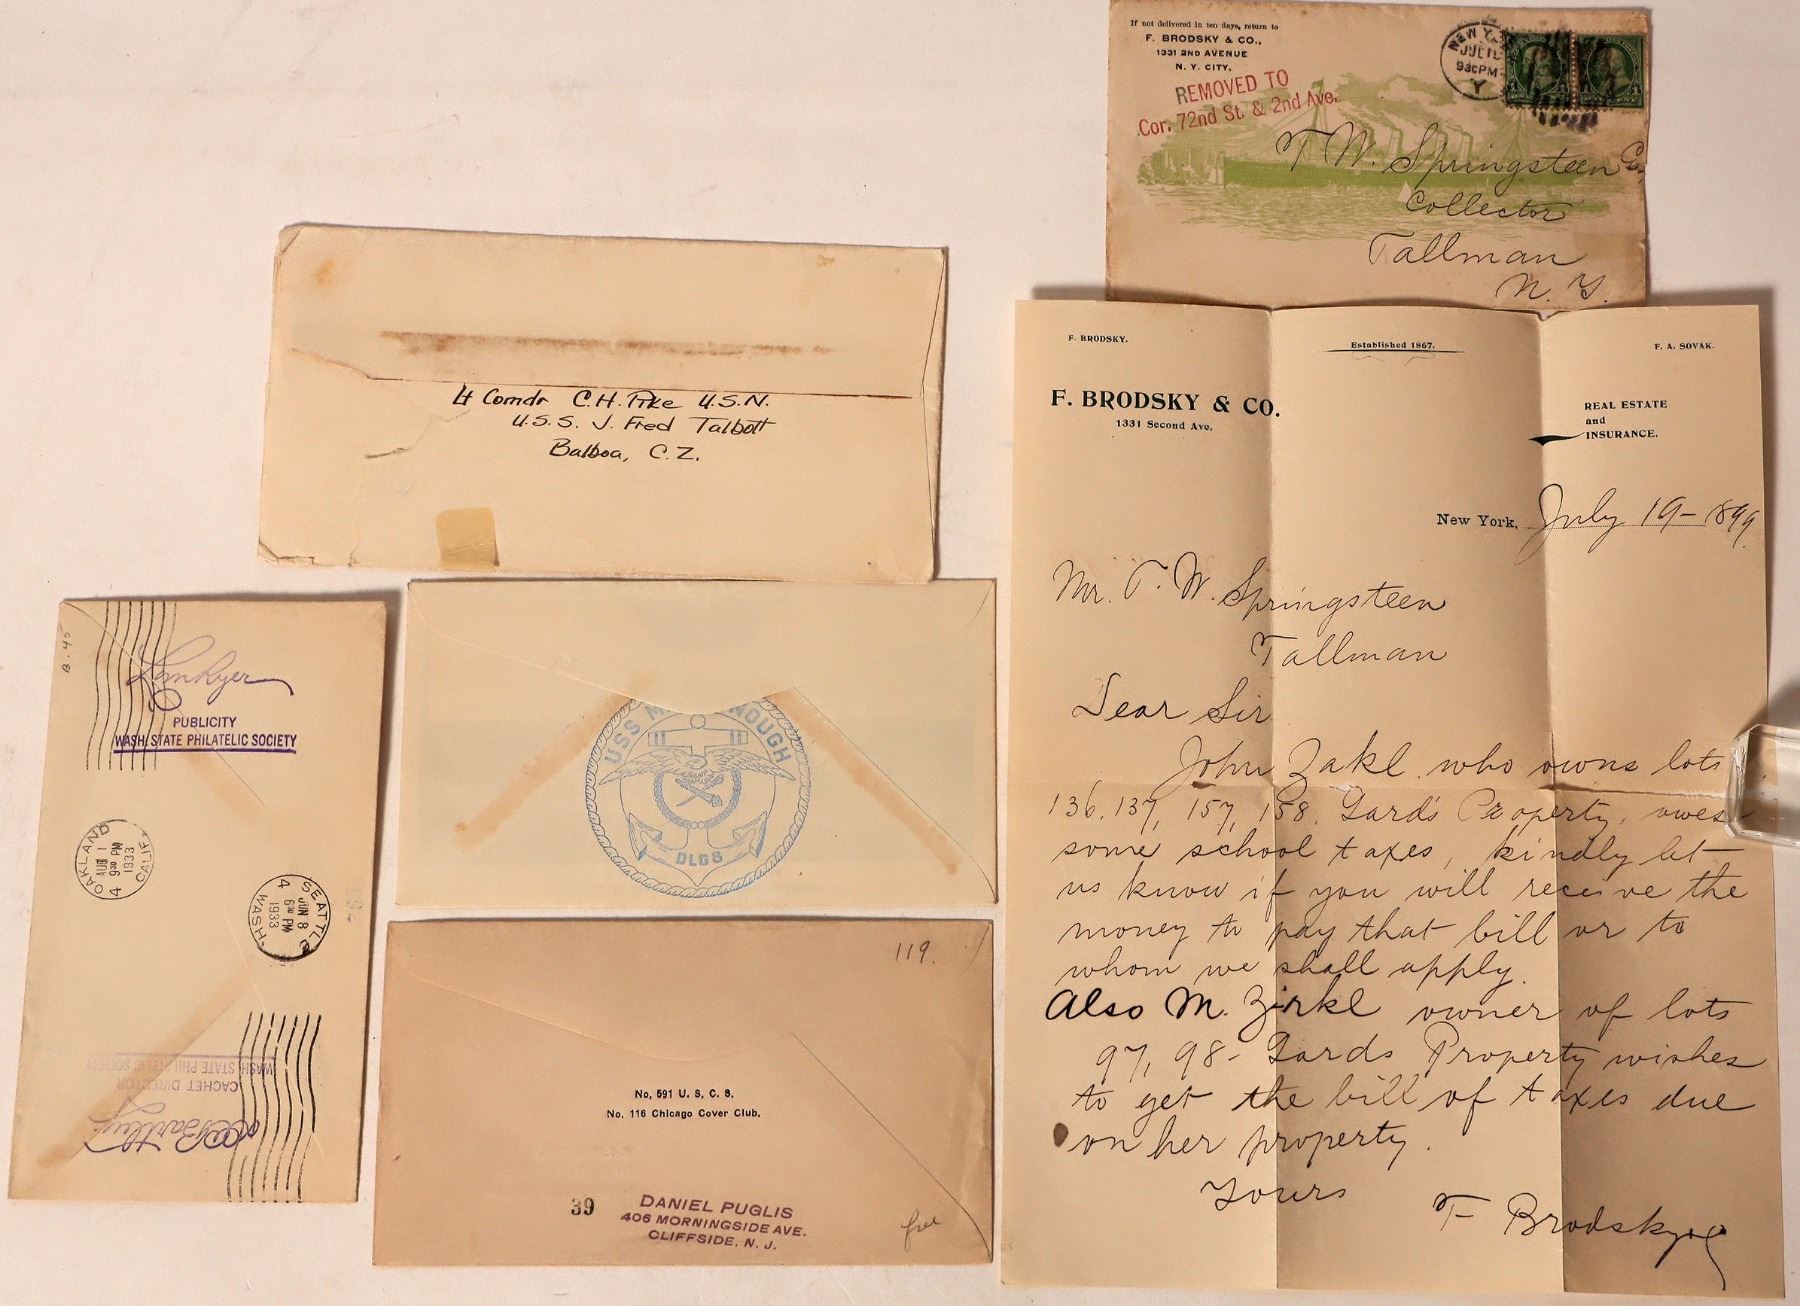 If not delivered in ten days, return to
F. BRODSKY & CO.,
1331 2ND AVENUE
N. Y. CITY.
REMOVED TO
Cor. 72nd St. & 2nd Ave.
NEW Y
JUL 19
930PM
Y
T. W. Springsteen
Collector
Tallman
N. Y.
Lt Comdr C. H. Pike U.S.N.
U.S.S. J. Fred Talbott
Balboa, C. Z.
F. BRODSKY.
Established 1867.
F. A. SOVAK.
F. BRODSKY & CO.
1331 Second Ave.
REAL ESTATE
and
INSURANCE.
New York, July 19-1899
Mr. T. W. Springsteen
Tallman
Dear Sir
John Zakl who owns lots
136, 137, 157, 158, Gards Property, owes
some school taxes, kindly let
us know if you will receive the
money to pay that bill or to
whom we shall apply.
Also M. Zirkl owner of lots
97, 98- Gards Property wishes
to get the bill of taxes due
on her property.
Yours F Brodsky
B-45
PUBLICITY
WASH. STATE PHILATELIC SOCIETY
OAKLAND
JUN 1
9 PM
1933
CALIF.
4
SEATTLE
JUN 8
6 PM
1933
WASH.
4
WASH. STATE PHILATELIC SOCIETY
CACHET DIRECTOR
Bartley
USS M NOUGH
DLG8
119.
No. 591 U. S. C. S.
No. 116 Chicago Cover Club.
39
DANIEL PUGLIS
406 MORNINGSIDE AVE.
CLIFFSIDE, N. J.
free